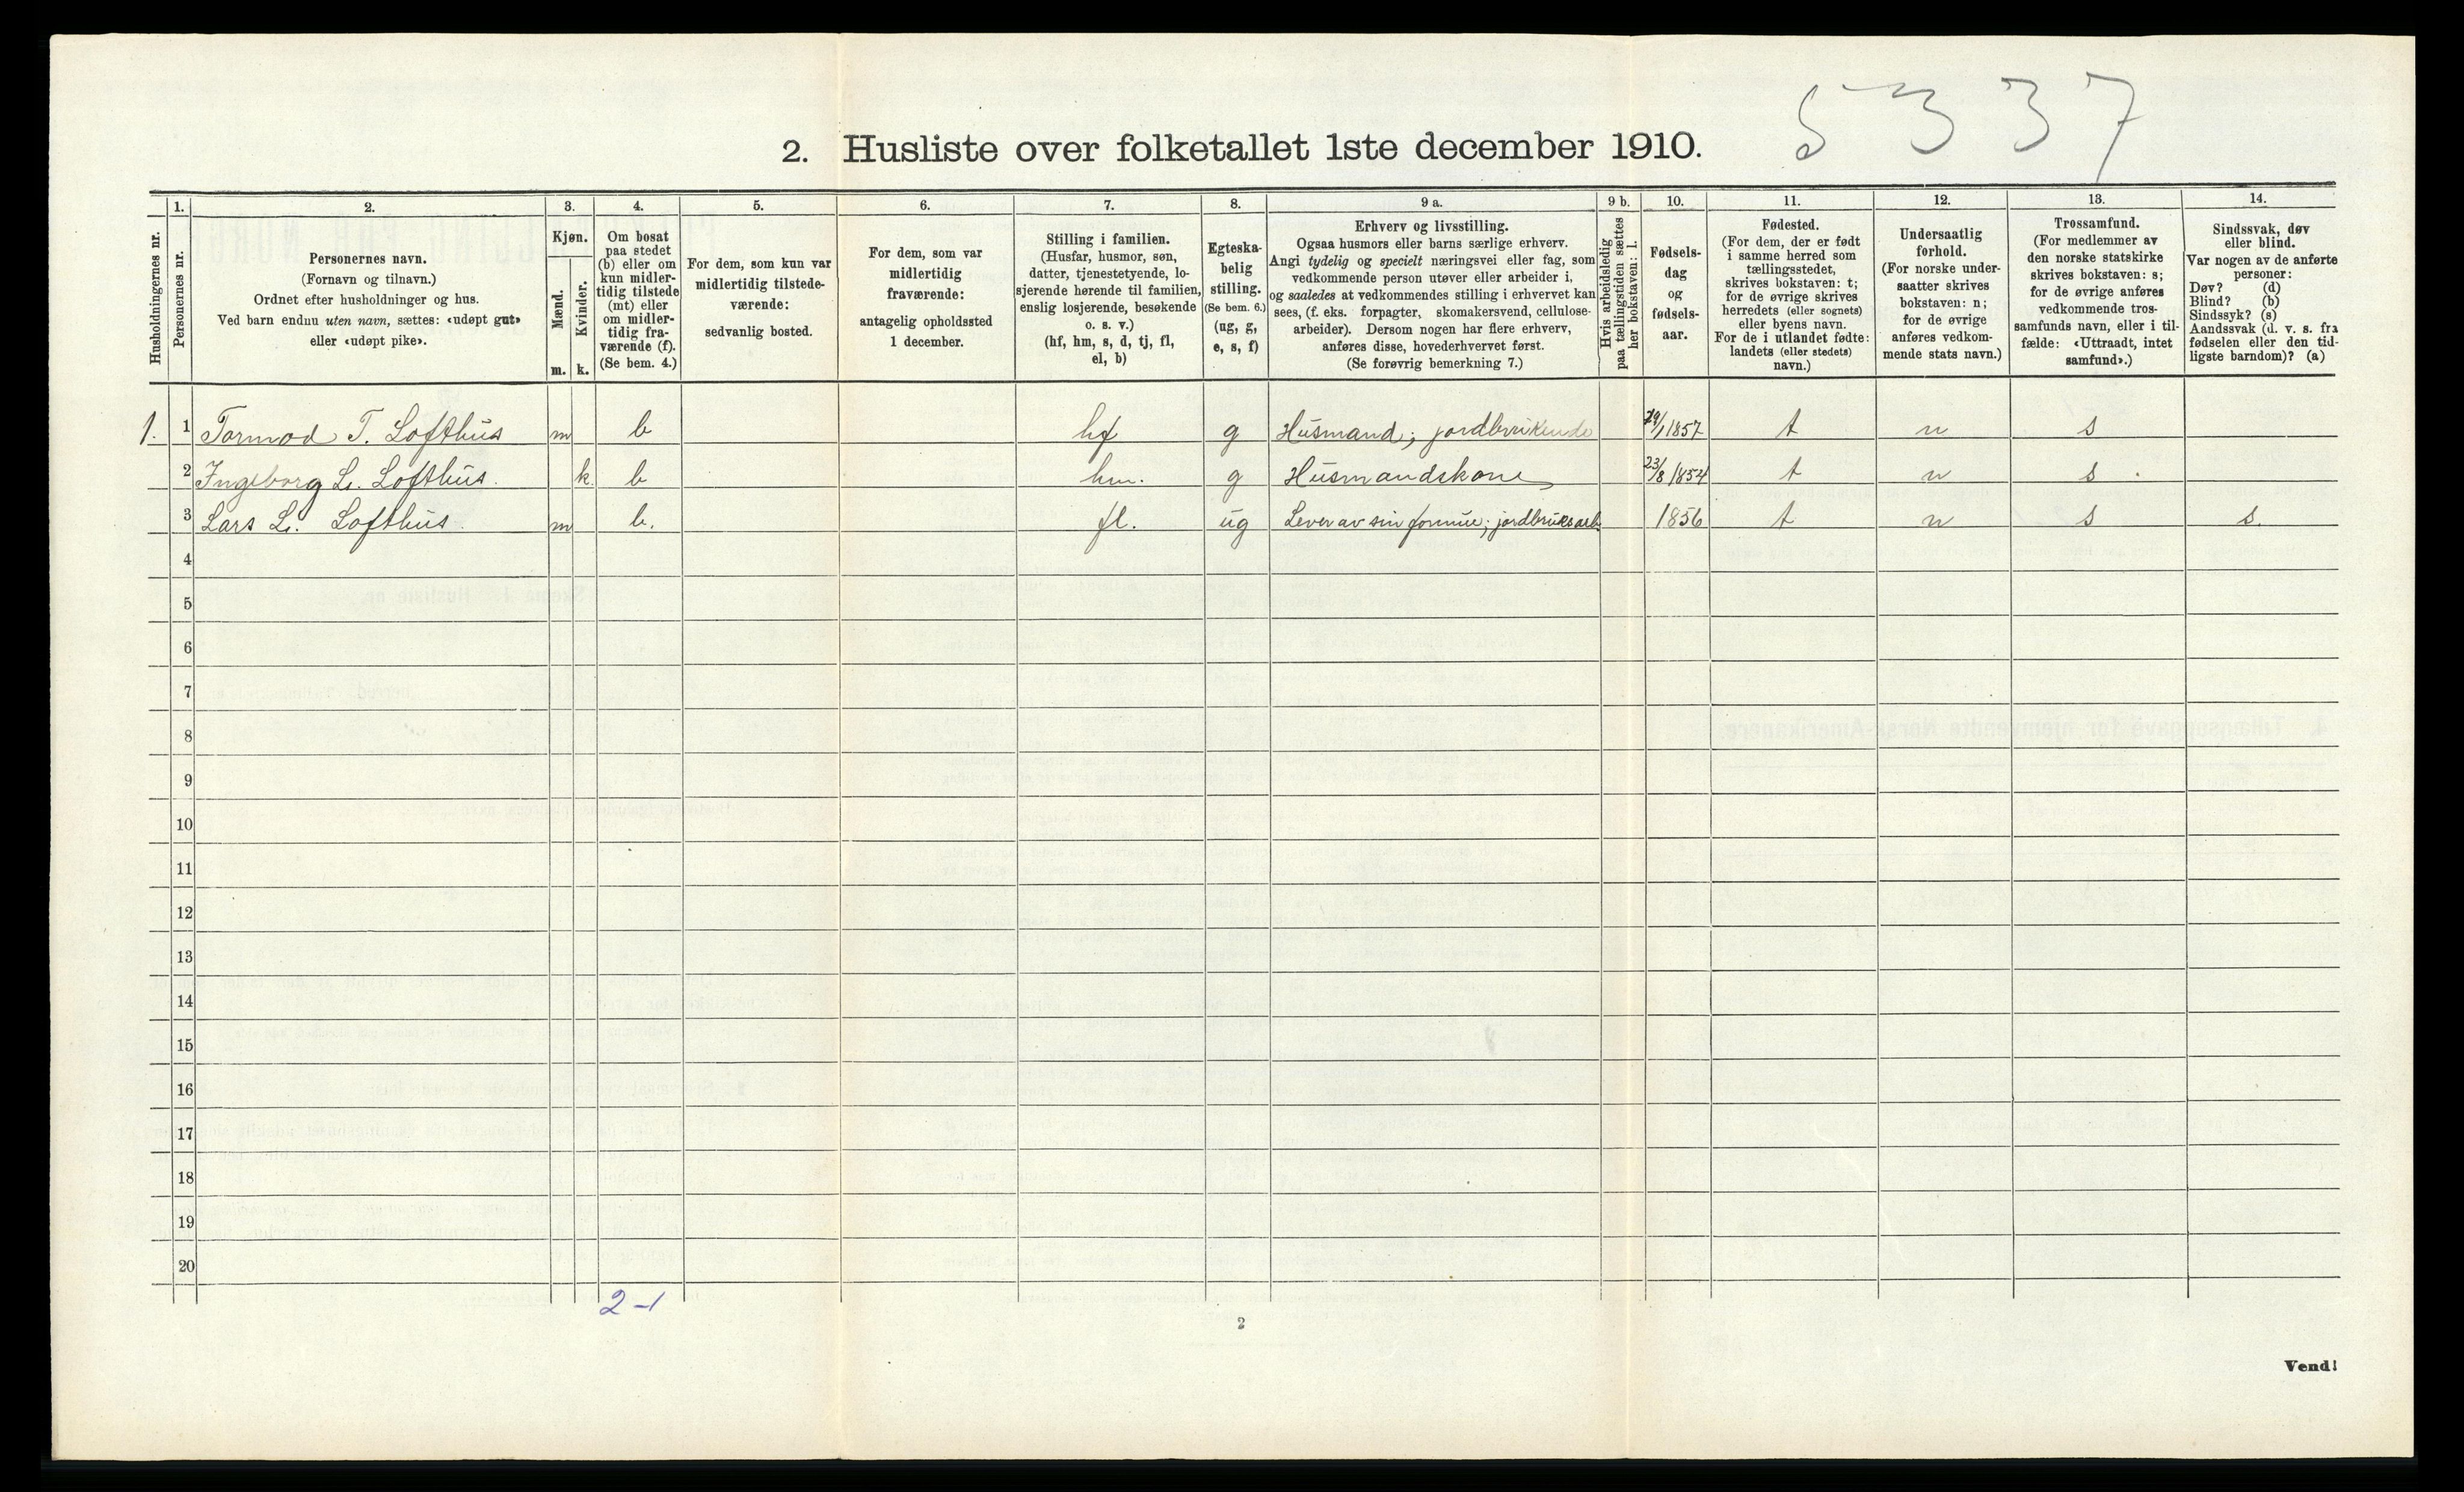 5337
2. Husliste over folketallet 1ste december 1910.
Husholdningernes nr.
1. Personernes nr.
2. Personernes navn.
(Fornavn og tilnavn.)
Ordnet efter husholdninger og hus.
Ved barn endnu uten navn, sættes: «udøpt gut»
eller «udøpt pike».
3. Kjøn.
Mænd. m.
Kvinder. k.
4. Om bosat
paa stedet
(b) eller om
kun midler-
tidig tilstede
(mt) eller
om midler-
tidig fra-
værende (f).
(Se bem. 4.)
5. For dem, som kun var
midlertidig tilstede-
værende:
sedvanlig bosted.
6. For dem, som var
midlertidig
fraværende:
antagelig opholdssted
1 december.
7. Stilling i familien.
(Husfar, husmor, søn,
datter, tjenestetyende, lo-
sjerende hørende til familien,
enslig losjerende, besøkende
o. s. v.)
(hf, hm, s, d, tj, fl,
el, b)
8. Egteska-
belig
stilling.
(Se bem. 6.)
(ug, g,
e, s, f)
9 a. Erhverv og livsstilling.
Ogsaa husmors eller barns særlige erhverv.
Angi tydelig og specielt næringsvei eller fag, som
vedkommende person utøver eller arbeider i,
og saaledes at vedkommendes stilling i erhvervet kan
sees, (f. eks. forpagter, skomakersvend, cellulose-
arbeider). Dersom nogen har flere erhverv,
anføres disse, hovederhvervet først.
(Se forøvrig bemerkning 7.)
9 b. Hvis arbeidsledig
paa tællingstiden sættes
her bokstaven: l.
10. Fødsels-
dag
og
fødsels-
aar.
11. Fødested.
(For dem, der er født
i samme herred som
tællingsstedet,
skrives bokstaven: t;
for de øvrige skrives
herredets (eller sognets)
eller byens navn.
For de i utlandet fødte:
landets (eller stedets)
navn.)
12. Undersaatlig
forhold.
(For norske under-
saatter skrives
bokstaven: n;
for de øvrige
anføres vedkom-
mende stats navn.)
13. Trossamfund.
(For medlemmer av
den norske statskirke
skrives bokstaven: s;
for de øvrige anføres
vedkommende tros-
samfunds navn, eller i til-
fælde: «Uttraadt, intet
samfund».)
14. Sindssvak, døv
eller blind.
Var nogen av de anførte
personer:
Døv? (d)
Blind? (b)
Sindssyk? (s)
Aandssvak (d. v. s. fra
fødselen eller den tid-
ligste barndom)? (a)
1. 1 Tormod T. Lofthus m b hf g Husmand; jordbrukende 29/1 1857 t n s
2 Ingeborg L. Lofthus. k. b hm. g Husmandskone 23/8 1854 t n s
3 Lars L. Lofthus. m b. fl. ug Lever av sin formue; jordbruksarb. 1856 t n s s.
4
5
6
7
8
9
10
11
12
13
14
15
16
17
18
19
20
2-1
2
Vend!